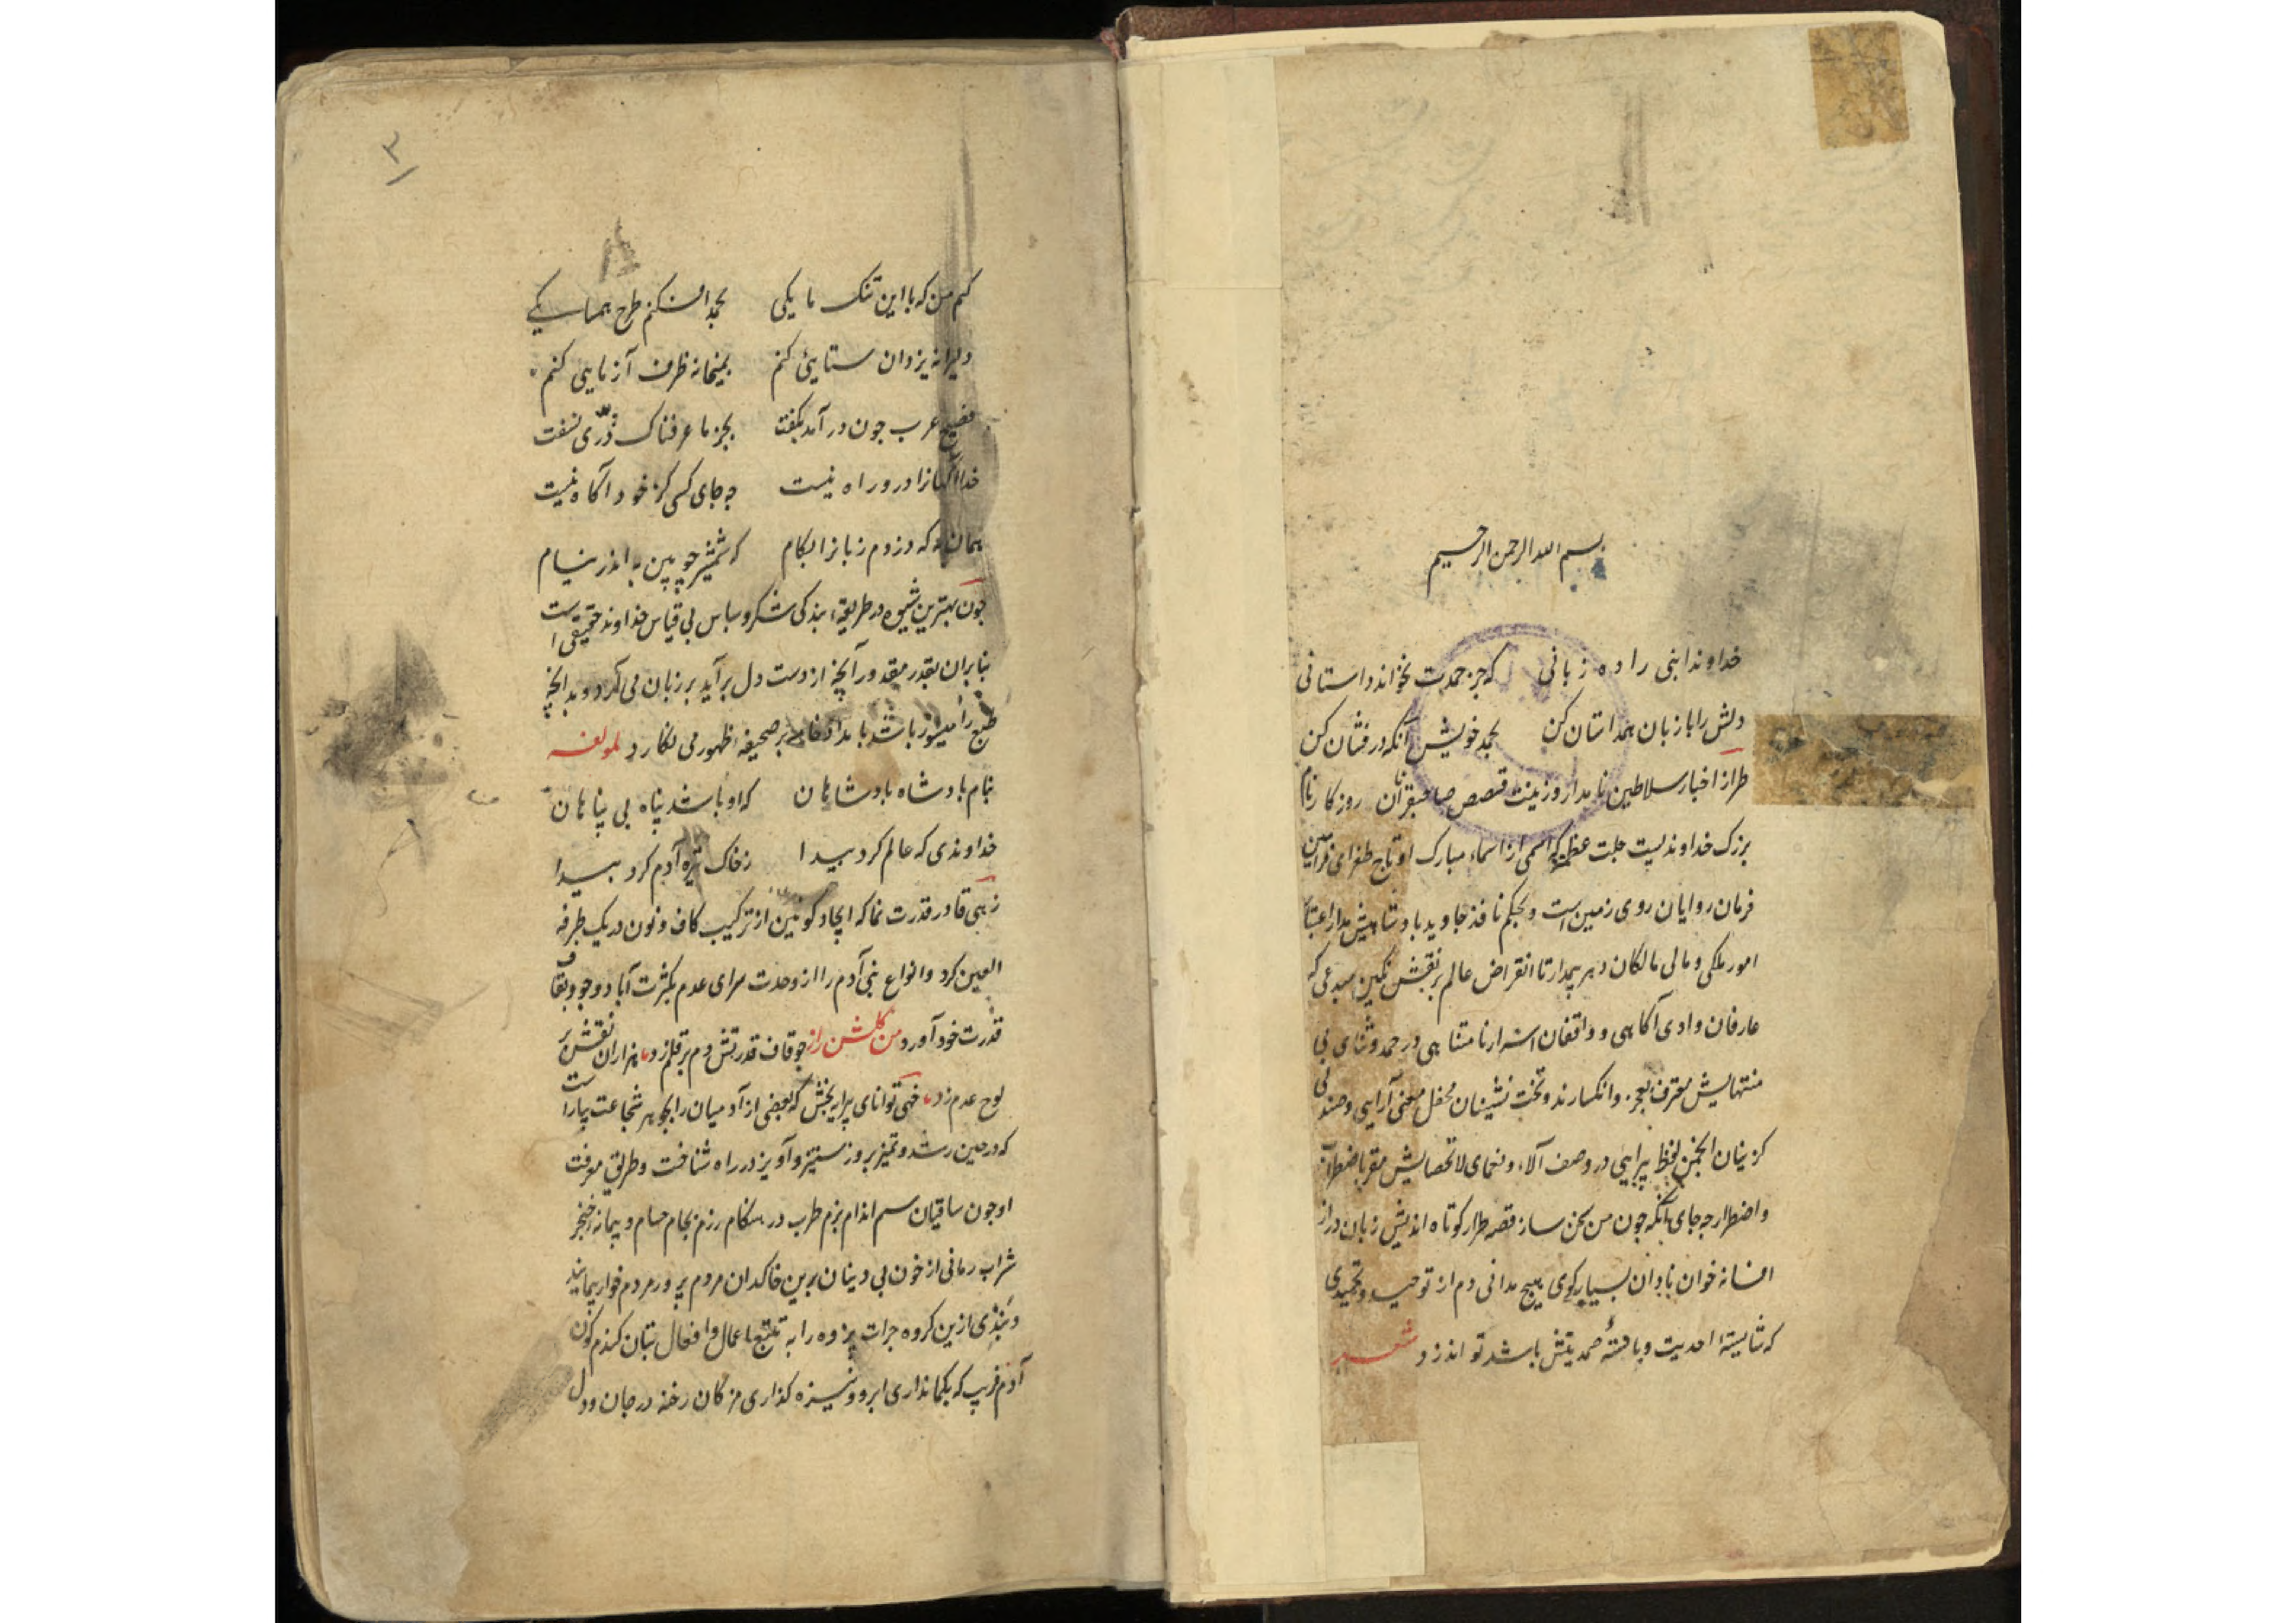 بسم الله الرحمن الرحیم
خداوندا بنی را ده زبانی که جز حمدت نخواند داستانی
دلش را با زبان همداستان کن بحمد خویش آنکه درفشان کن
طراز اخبار سلاطین نامدار و زینت قصص صاحبقران روزکار نام
بزرک خداوندیست جلت عظمته که اسمی از اسماء مبارک او تاج طغرای فرامین
فرمان روایان روی زمین است و بحکم نافذ جاوید بادشاهیش مدار اعتبار
امور ملکی و مالی مالکان دهر بیمدار تا انقراض عالم بر نقش نکین مبدعی که
عارفان وادی آکاهی و واقفان اسرار نامتناهی در حمد و ثنای بی
منتهایش معترف بعجز و انکسارند و تخت نشینان محفل معنی آرایی و مسند
کزینان انجمن لفظ پیرایی در وصف آلاء و نعمای لاتحصایش مقر باضطرار
و اضطرار چه جای آنکه جون من سخن ساز قصه طراز کوتاه اندیش زبان دراز
افسانه خوان نادان بسیارکوی هیچ مدانی دم از توحید و تحمیدی
که شایسته احدیت و صمدیتش باشد تواند زد شعر
۳
کیم من که با این تنک مایکی بحمد الله کنم طرح همسایکی
دلیرانه یزدان ستایی کنم بمیخانه ظرف آزمایی کنم
فصیح عرب جون در آمد بکفت بجز ما عرفناک دری نسفت
خدا آکهانرا درو راه نیست چه جای کسی کز خود آکاه نیست
همان به که دزدم زبانرا بکام که شمشیر چوبین به اندر نیام
جون بهترین شیوه در طریقه بندکی شکر و سپاس بی قیاس خداوند حقیقی است
بنابران بقدر مقدور آنچه از دست دل برآید بر زبان می آرد و بدانچه
طبع را میسور باشد با مداد خامه بر صحیفه ظهور می نکارد لمولفه
بنام بادشاه بادشاهان که او باشد پناه بی پناهان
خداوندی که عالم کرد پیدا ز خاک تیره آدم کرد پیدا
زهی قادر قدرت نما که ایجاد کونین از ترکیب کاف و نون در یک طرفة
العین کرد و انواع بنی آدم را از وحدت سرای عدم بکثرت آباد وجود بقاف
قدرت خود آورد من کلشن راز جو قاف قدرتش دم بر قلم زد هزاران نقش بر
لوح عدم زد زهی توانای پیرایه بخش که بعضی از آدمیان را بجوهر شجاعت بیاراست
که در حین رشد و تمیز بروز ستیز و آویز در راه شناخت و طریق معرفت
او جون ساقیان سیم اندام بزم طرب در هنکام رزم بجام حسام و پیمانه خنجر
شراب رمانی از خون بی دینان برین خاکدان مردم پرور مردم خوار پیمایند
و بندی ازین کروه جرات پژوه را به تتبع اعمال و افعال بتان کندم کون
آدم فریب که بکمانداری ابرو و نیزه کذاری مژکان رخنه در جان و دل